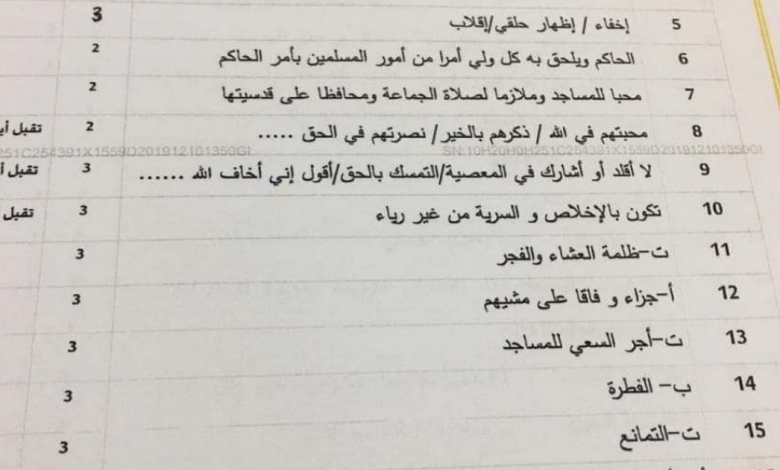 5 إخفاء / إظهار حلقي/إقلاب 3
6 الحاكم ويلحق به كل ولي أمرا من أمور المسلمين بأمر الحاكم 2
7 محبا للمساجد وملازما لصلاة الجماعة ومحافظا على قدسيتها 2
8 محبتهم في الله / ذكرهم بالخير / نصرتهم في الحق ..... 2 تقبل
SN:10H20H0H251C254391X1559D201912101350GI
9 لا أقلد أو أشارك في المعصية/التمسك بالحق/أقول إني أخاف الله ...... 3 تقبل
10 تكون بالإخلاص و السرية من غير رياء 3 تقبل
11 ت-ظلمة العشاء والفجر 3
12 أ-جزاء و فاقا على مشيهم 3
13 ت-أجر السعي للمساجد 3
14 ب- الفطرة 3
15 ت-التمانع 3